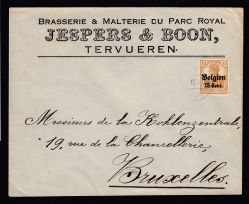 Brasserie & Malterie du Parc Royal
JESPERS & BOON,
TERVUEREN.
Belgien
15 Cent.
Messieurs de la Kohlenzentrale,
19, rue de la Chancellerie,
Bruxelles.